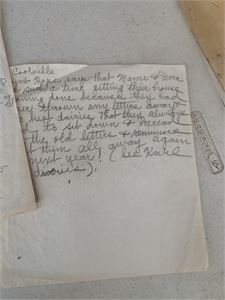 Coolville
Hope says that Mame & Dona
such a time, getting their house
cleaning done because they had
never thrown any letters away
kept dairies that they always
to sit down & reread
the old letters &
them all away again
next year! (See Karl
diaries).